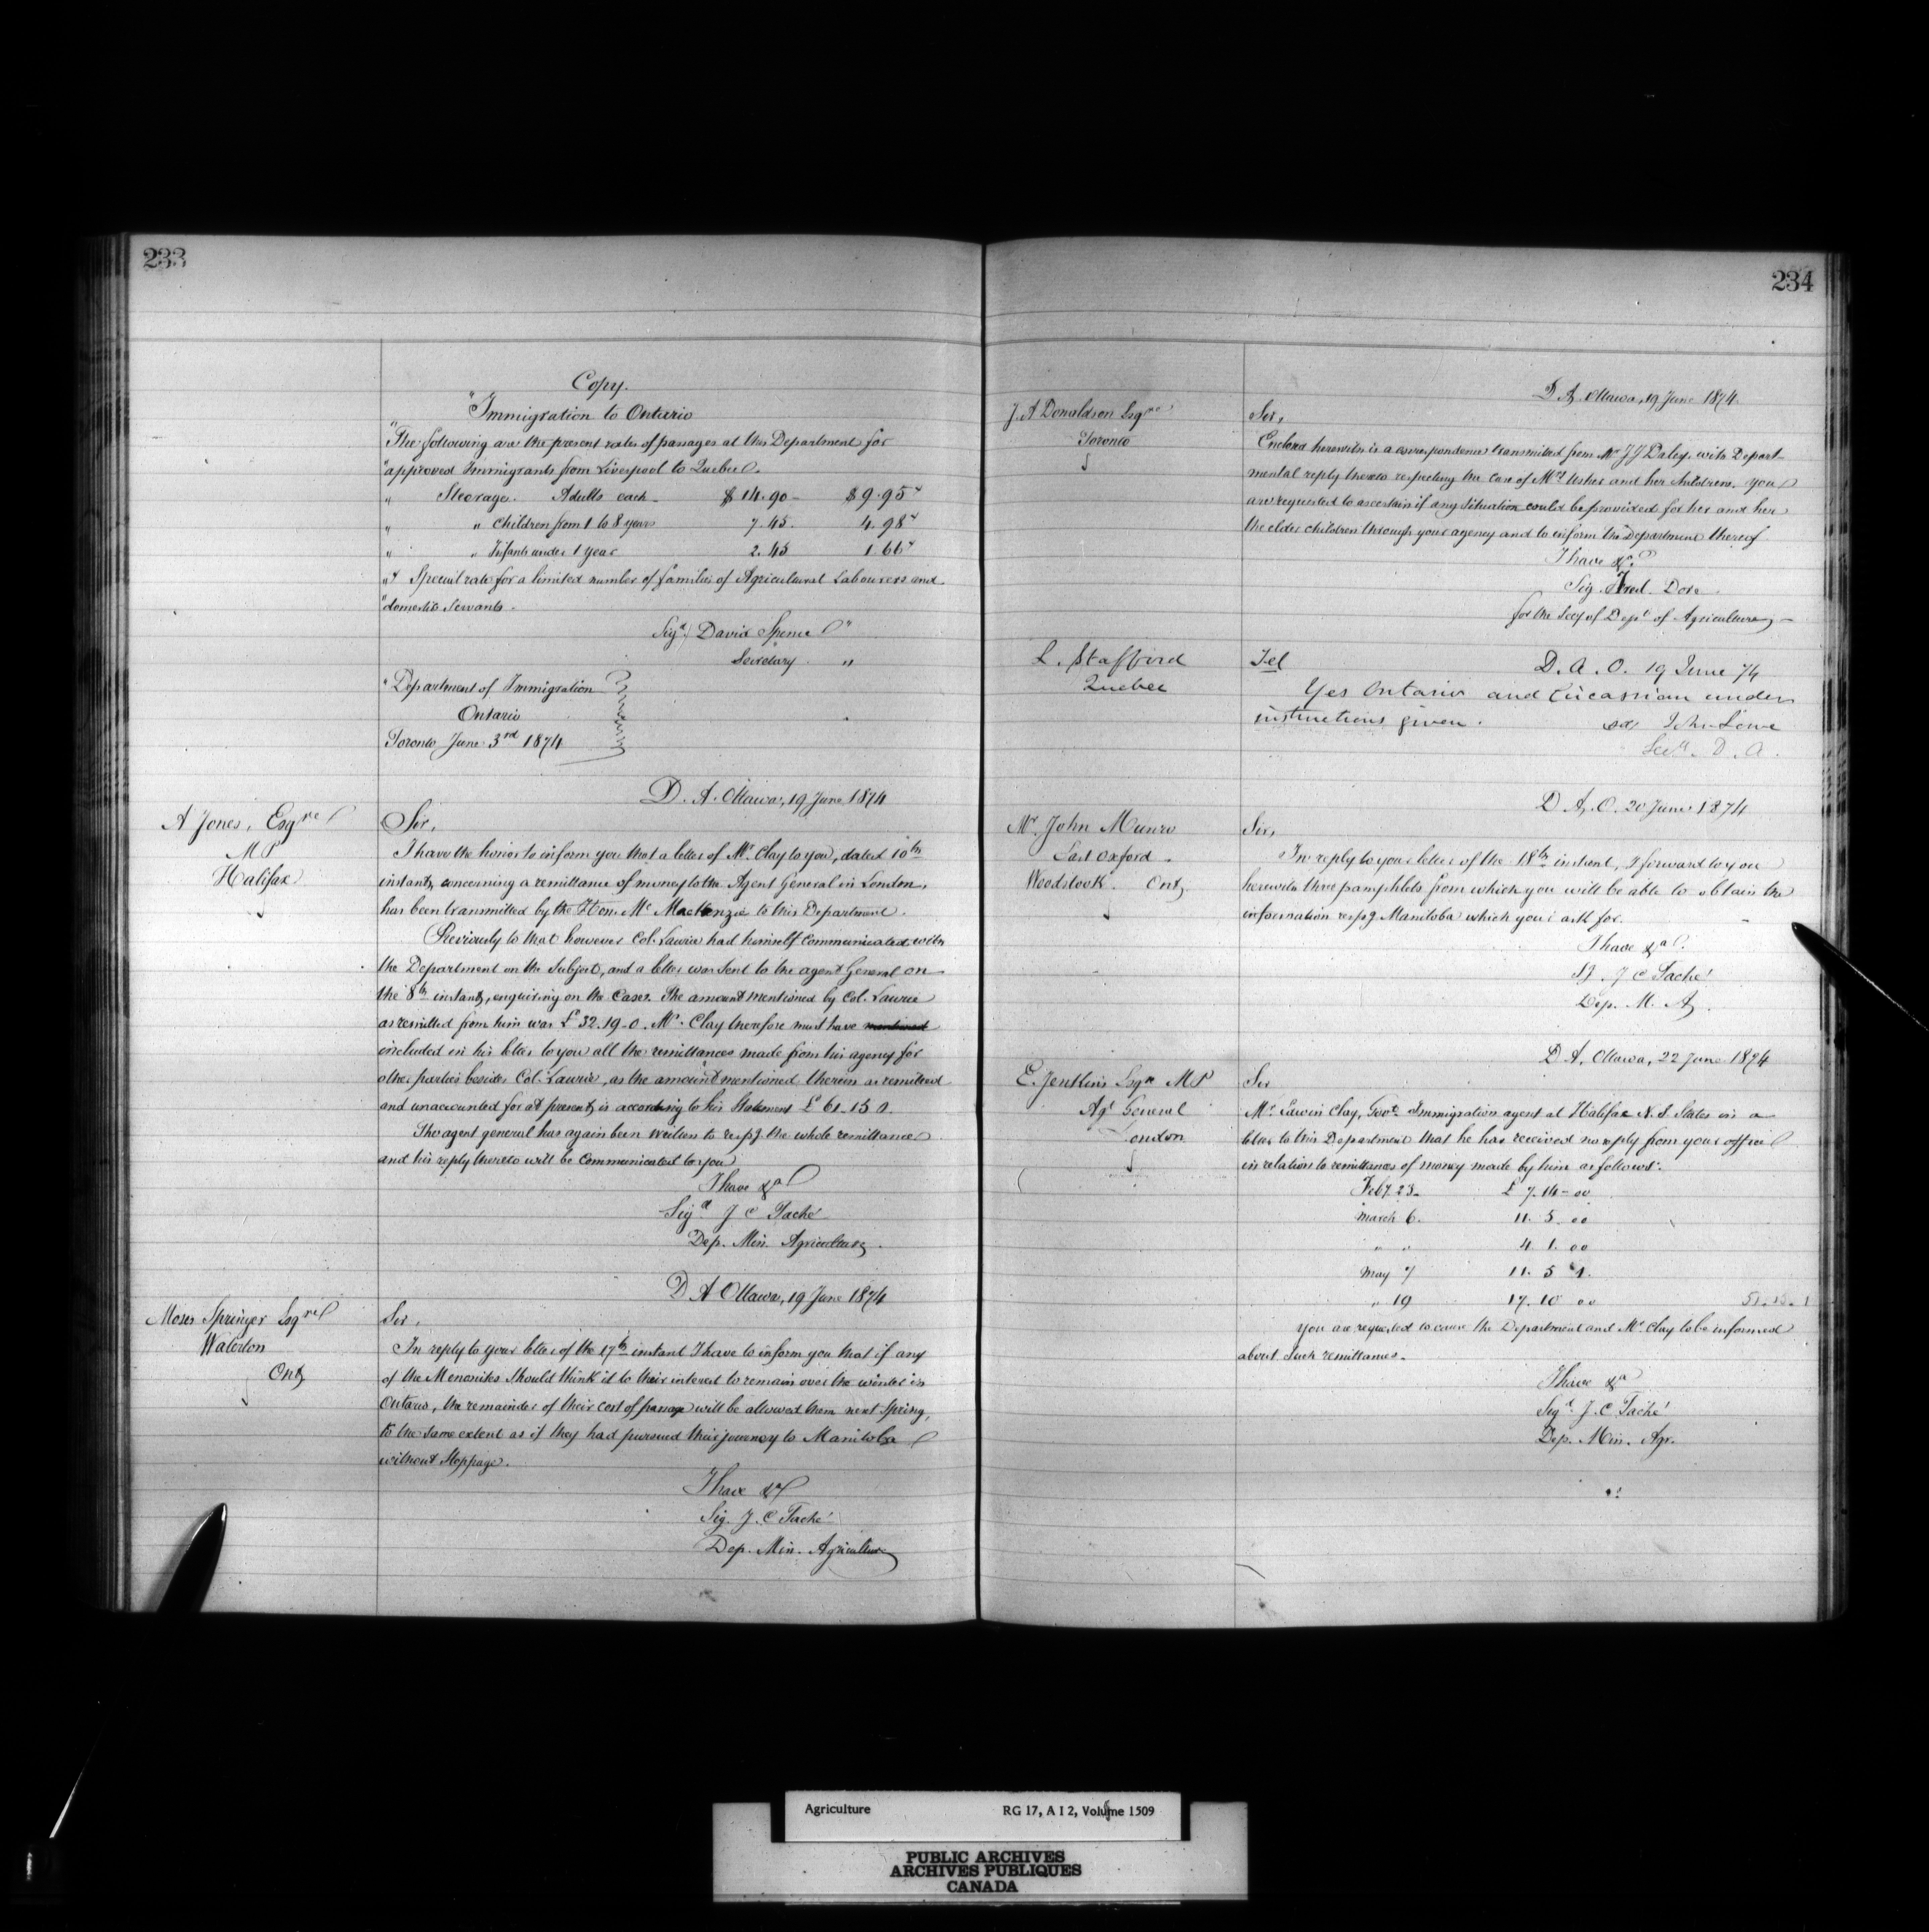 233
Copy.
"Immigration to Ontario
"The following are the present rates of passages at this Department for
"approved Immigrants from Liverpool to Quebec.
" Steerage. Adults each - $14.90 - $9.95
" " Children from 1 to 8 years 7.45. 4.98
" " Infants under 1 year 2.45 1.66
" Special rate for a limited number of families of Agricultural Labourers and
"domestic Servants.
Sigd/ David Spence "
Secretary "
"Department of Immigration
Ontario
Toronto June 3rd 1874
D. A. Ottawa, 19 June 1874
A Jones, Esqre
MP
Halifax
Sir,
I have the honor to inform you that a letter of Mr. Clay to you, dated 10th
instant, concerning a remittance of money to the Agent General in London,
has been transmitted by the Hon. Mr MacKenzie to this Department.
Previously to that however Col. Laurie had himself communicated with
the Department on the Subject, and a letter was sent to the agent General on
the 8th instant, enquiring on the Case. The amount mentioned by Col. Laurie
as remitted from him was £32.19-0. Mr. Clay therefore must have mentioned
included in his letter to you all the remittances made from his agency for
other parties besides Col. Laurie, as the amount mentioned therein as remitted
and unaccounted for at present, is according to his Statement £ 61-15 1.
The agent general has again been written to respg. the whole remittance
and his reply thereto will be communicated to you
I have &a
Sigd J C Taché
Dep. Min. Agriculture.
D A Ottawa, 19 June 1874
Moses Springer Esqre
Waterloo
Ont,
Sir,
In reply to your letter of the 17th instant I have to inform you that if any
of the Menonites should think it to their interest to remain over the winter in
Ontario, the remainder of their cost of passage will be allowed them next Spring,
to the same extent as if they had pursued their journey to Manitoba
without stoppage.
I have &a
Sig. J. C Taché
Dep. Min. Agriculture
234
D A, Ottawa, 19 June 1874.
J. A Donaldson Esqre
Toronto
Sir,
Enclosed herewith is a correspondence transmitted from Mr J J Daley, with Depart-
mental reply thereto respecting the case of Mrs Usher and her children. you
are requested to ascertain if any situation could be provided for her and her
the elder children through your agency and to inform the Department thereof
I have &a.
Sig. Fred. Dore.
for the Secy of Dept of Agriculture
L. Stafford
Quebec
Tel
D. A. O. 19 June 74
Yes Ontario and Circassian under
instructions given.
sd John Lowe
Secy. D. A.
D A. O. 20 June 1874
Mr. John Munro
East Oxford.
Woodstock. Ont,
Sir,
In reply to your letter of the 18th instant, I forward to you
herewith three pamphlets from which you will be able to obtain the
information respg Manitoba which you ask for.
I have &a.
J C Taché
Dep. M. A.
D A, Ottawa, 22 June 1874
E. Jenkins Esqre MP
Agt General
London
Sir
Mr. Edwin Clay, Govt Immigration agent at Halifax N.S. States in a
letter to this Department that he has received no reply from your office
in relation to remittances of money made by him as follows:
Feby 23. £ 7.14-00
March 6. 11. 5. 00
" " 4. 1. 00
May 7 11. 5 1.
" 19 17. 10 00 51.15.1
You are requested to cause the Department and Mr. Clay to be informed
about such remittances.
I have &a
Sigd. J. C Taché
Dep. Min. Agr.
Agriculture RG 17, A I 2, Volume 1509
PUBLIC ARCHIVES
ARCHIVES PUBLIQUES
CANADA